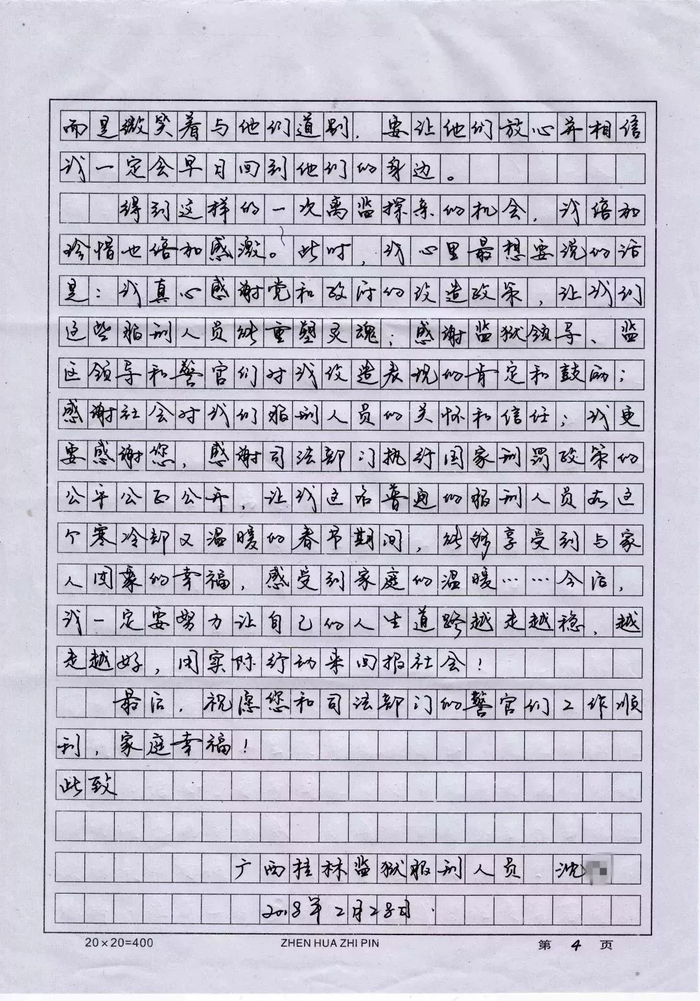 而是微笑着与他们道别，要让他们放心并相信
我一定会早日回到他们的身边。
得到这样的一次离监探亲的机会，我倍加
珍惜也倍加感激。此时，我心里最想要说的话
是：我真心感谢党和政府的改造政策，让我们
这些服刑人员能重塑灵魂；感谢监狱领导、监
区领导和警官们对我改造表现的肯定和鼓励；
感谢社会对我们服刑人员的关怀和信任；我更
要感谢您，感谢司法部门执行国家刑罚政策的
公平公正公开，让我这名普通的服刑人员在这
个寒冷却又温暖的春节期间，能够享受到与家
人团聚的幸福，感受到家庭的温暖……今后，
我一定要努力让自己的人生道路越走越稳，越
走越好，用实际行动来回报社会！
最后，祝愿您和司法部门的警官们工作顺
利，家庭幸福！
此致
广西桂林监狱服刑人员 沈
2018年2月28日
20×20=400 ZHEN HUA ZHI PIN 第 4 页